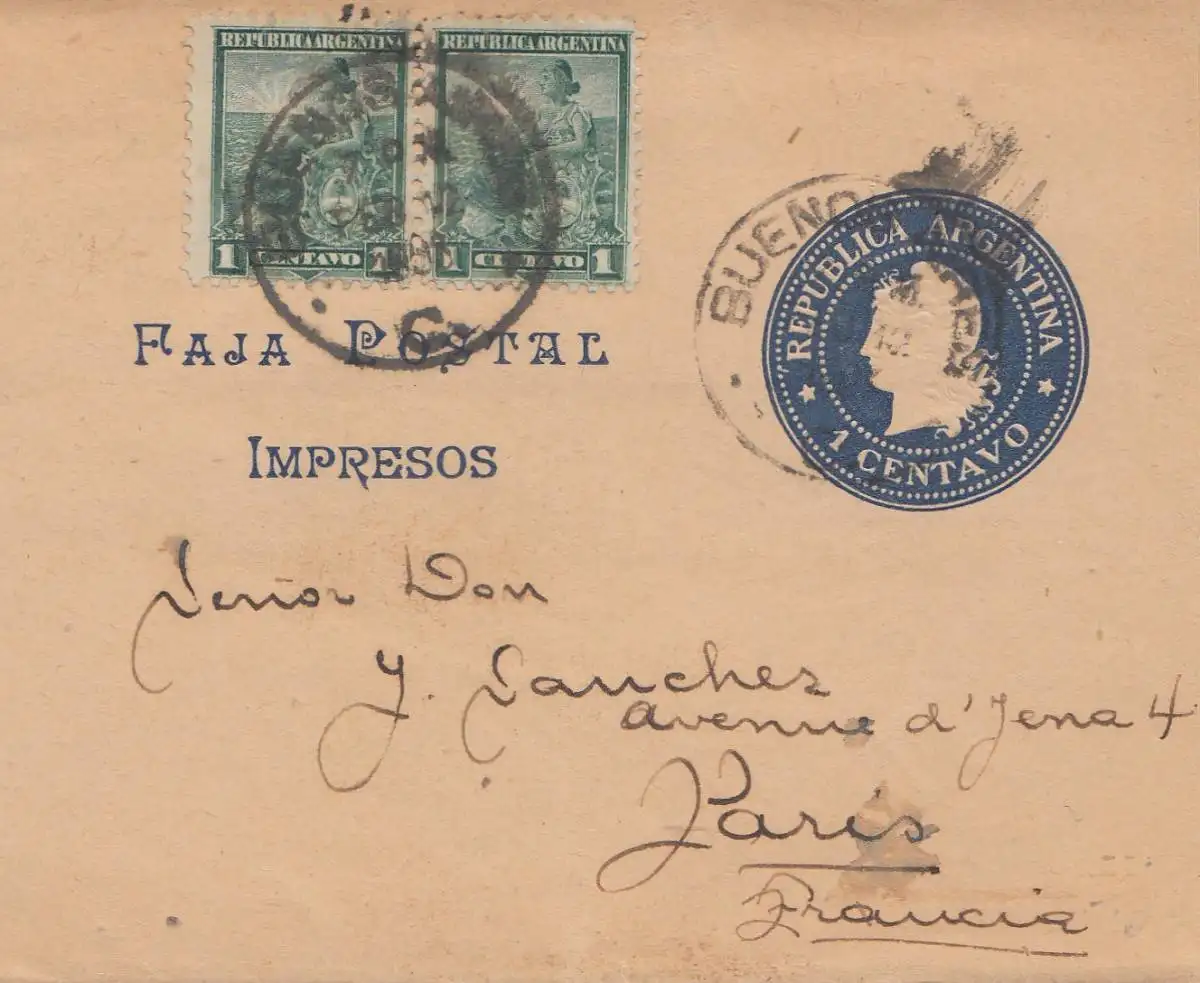 REPÚBLICA ARGENTINA
REPÚBLICA ARGENTINA
1 CENTAVO 1
1 CENTAVO 1
C
BUENO
REPÚBLICA ARGENTINA
1 CENTAVO
FAJA POSTAL
IMPRESOS
Señor Don
J. Sanchez
avenue d'Jena 4
Paris
Francia